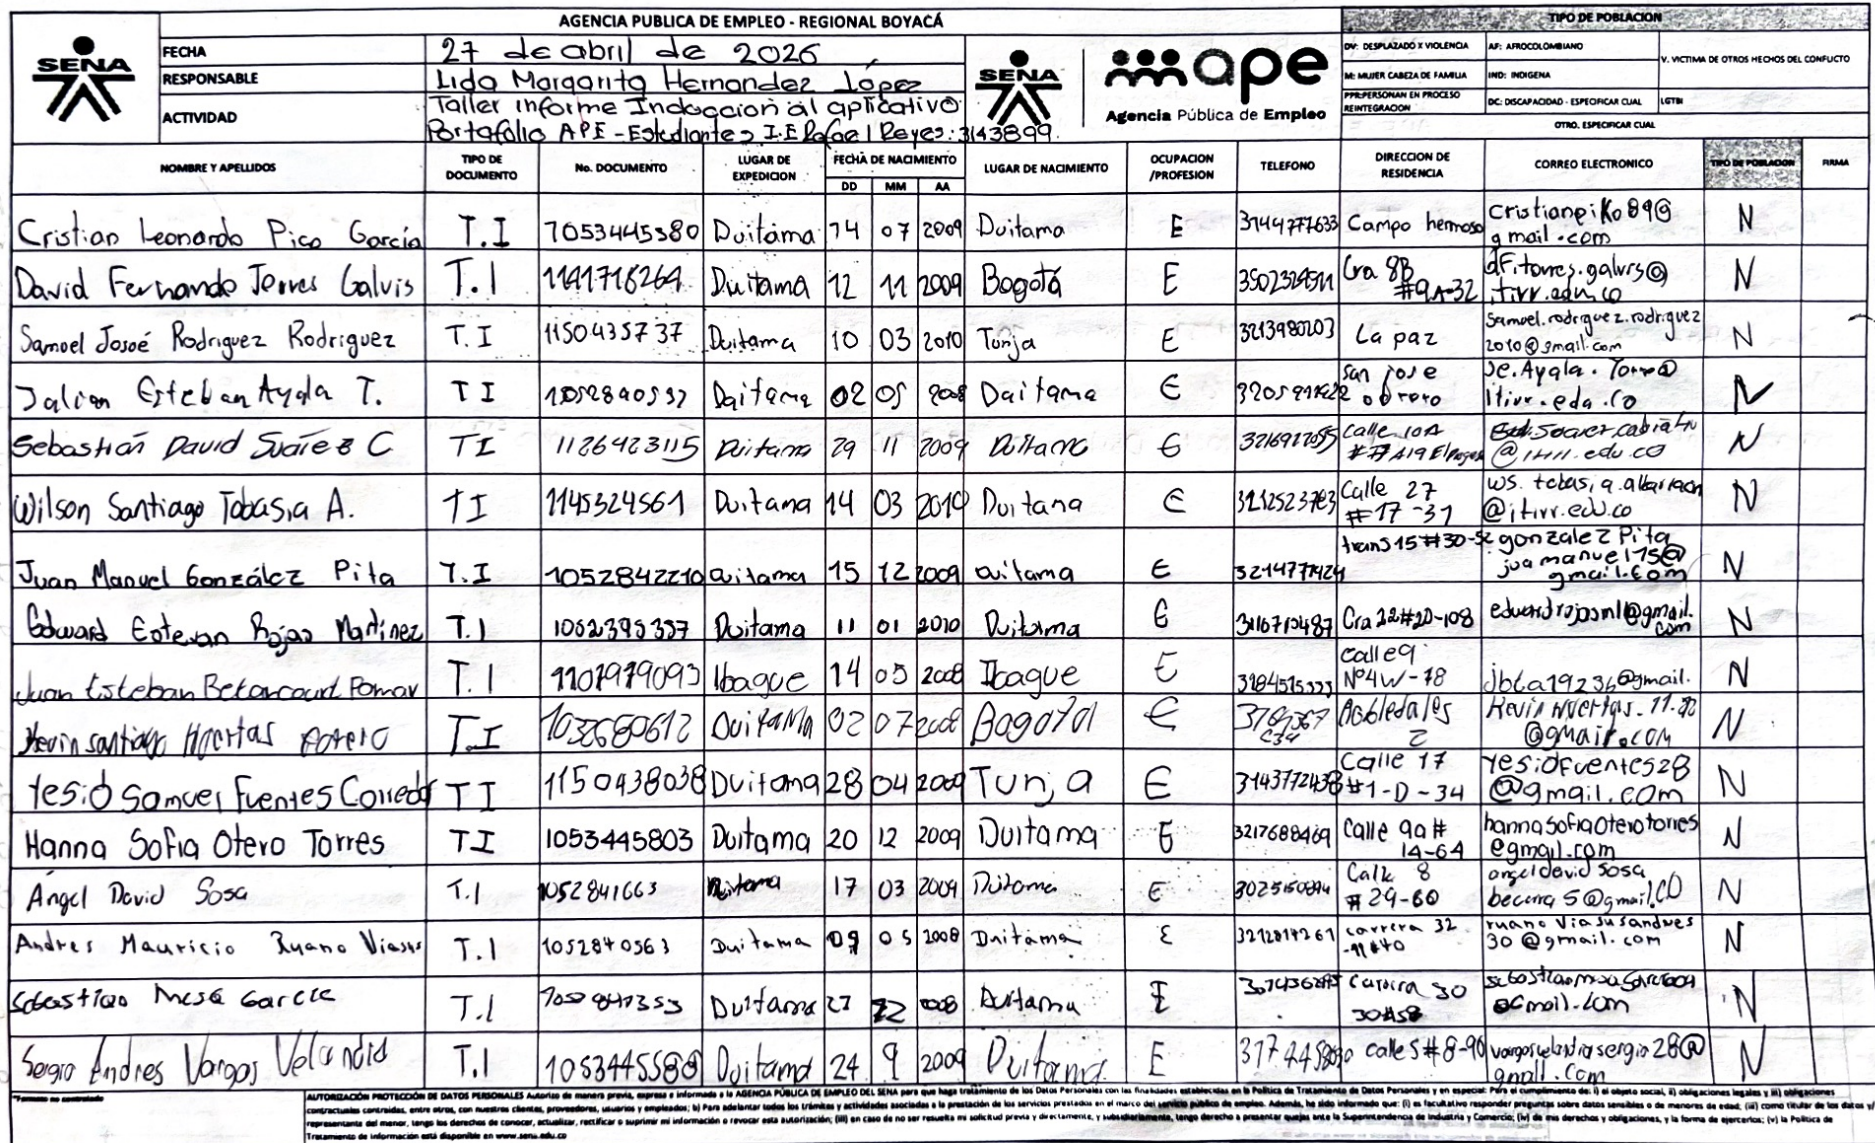 AGENCIA PUBLICA DE EMPLEO - REGIONAL BOYACÁ
TIPO DE POBLACION
SENA
FECHA 27 de abril de 2026
RESPONSABLE Lida Margarita Hernandez López
ACTIVIDAD Taller informe Inducción al aplicativo
Portafolio APE - Estudiantes I.E Rafael Reyes: 3143899.
SENA
ape
Agencia Pública de Empleo
DV: DESPLAZADO X VIOLENCIA AF: AFROCOLOMBIANO V. VICTIMA DE OTROS HECHOS DEL CONFLICTO
M: MUJER CABEZA DE FAMILIA IND: INDIGENA
PPR:PERSONAN EN PROCESO REINTEGRACION DC: DISCAPACIDAD - ESPECIFICAR CUAL LGTBI
OTRO. ESPECIFICAR CUAL
NOMBRE Y APELLIDOS TIPO DE DOCUMENTO No. DOCUMENTO LUGAR DE EXPEDICION FECHA DE NACIMIENTO LUGAR DE NACIMIENTO OCUPACION /PROFESION TELEFONO DIRECCION DE RESIDENCIA CORREO ELECTRONICO TIPO DE POBLACION FIRMA
DD MM AA
Cristian Leonardo Pico García T.I 1053445580 Duitama 14 07 2009 Duitama E 3144777633 Campo hermoso cristianpiko89@gmail.com N
David Fernando Torres Galvis T.I 1141716264 Duitama 12 11 2009 Bogotá E Cra 8B #9A-32 df.torres.galvis@itirr.edu.co N
Samuel Josué Rodriguez Rodriguez T.I 1150435737 Duitama 10 03 2010 Tunja E 3213980203 La paz samuel.rodriguez.rodriguez2010@gmail.com N
Julian Esteban Ayala T. TI 1052840532 Duitama 02 05 2008 Duitama E san jose obrero N
Sebastián David Suárez C TI 1126423115 Duitama 29 11 2009 Duitama E calle 10A N
Wilson Santiago Tobasia A. TI 1145324561 Duitama 14 03 2010 Duitama E 3212523783 Calle 27 #17-31 @itirr.edu.co N
Juan Manuel González Pita T.I 1052842210 Duitama 15 12 2009 Duitama E 3214771424 trans 15 #30-52 gonzalez Pita juamanuel15@gmail.com N
Edward Estevan Rojas Martinez T.I 1052395337 Duitama 11 01 2010 Duitama E 3116712487 Cra 22#20-108 eduardrojasml@gmail.com N
Juan Esteban Betancourt Pomar T.I 1107979093 Ibague 14 05 2008 Ibague E calle 9 Nº4W-78 jbta19236@gmail. N
Kevin santiago Huertas T.I 1032680612 Duitama 02 07 2008 Bogota E Robledales 2 Kevin Huertas.11.@gmail.com N
Yesid Samuel Fuentes Corredor TI 1150438038 Duitama 28 04 2009 Tunja E 3143772438 Calle 17 #1-D-34 Yesidfuentes28@gmail.com N
Hanna Sofia Otero Torres TI 1053445803 Duitama 20 12 2009 Duitama E 3217688469 Calle 9a# 14-64 hannasofiaoterotorres@gmail.com N
Angel David Sosa T.I 1052841663 Duitama 17 03 2009 Duitama E Calle 8 #29-60 angeldavid sosa becerra5@gmail.co N
Andres Mauricio Ruano Viasus T.I 1052840563 Duitama 09 05 2008 Duitama E 3212817261 carrera 32 -11#40 ruano viasusandres30@gmail.com N
Sebastian Mesa Garcia T.I Duitama 22 2008 Duitama E Carrera 30 30#58 N
Sergio Andres Vargas Velandia T.I 1053445588 Duitama 24 9 2009 Duitama E calle 5 #8-90 vargasvelandiasergio28@gmail.com N
*Formato no controlado
AUTORIZACIÓN PROTECCIÓN DE DATOS PERSONALES Autorizo de manera previa, expresa e informada a la AGENCIA PÚBLICA DE EMPLEO DEL SENA para que haga tratamiento de los Datos Personales con las finalidades establecidas en la Política de Tratamiento de Datos Personales y en especial: Para el cumplimiento de: i) el objeto social, ii) obligaciones legales y iii) obligaciones
contractuales contraídas, entre otros, con nuestros clientes, proveedores, usuarios y empleados; b) Para adelantar todos los trámites y actividades asociadas a la prestación de los servicios prestados en el marco del servicio público de empleo. Además, he sido informado que: (i) es facultativo responder preguntas sobre datos sensibles o de menores de edad, (ii) como titular de los datos y/
representante del menor, tengo los derechos de conocer, actualizar, rectificar o suprimir mi información o revocar esta autorización; (iii) en caso de no ser resuelta mi solicitud previa y directamente, y subsidiariamente, tengo derecho a presentar quejas ante la Superintendencia de Industria y Comercio; (iv) de mis derechos y obligaciones, y la forma de ejercerlos; (v) la Política de
Tratamiento de información está disponible en www.sena.edu.co